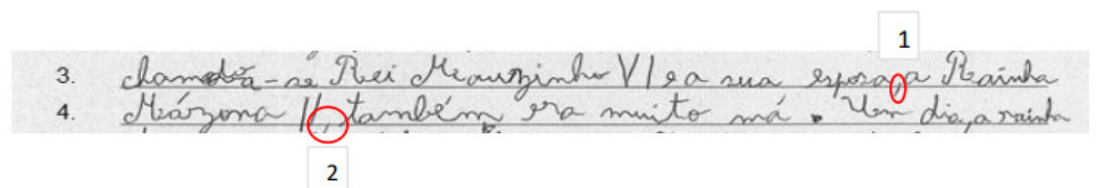 1
3. chamava-se Rei Mauzinho VI e a sua esposa, a Rainha
4. Meázona II, também era muito má. Um dia, a rainha
2